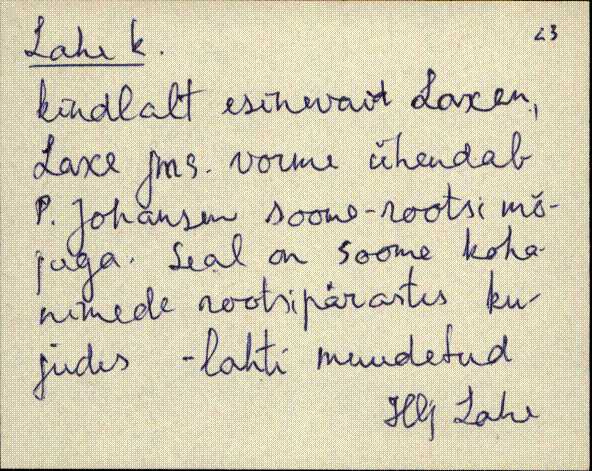 23
Lahe k.
kindlalt esinevait Laxen,
Laxe jms. vorme ühendab
P. Johansen soome-rootsi mõ-
juga. Seal on soome koha-
nimede rootsipärastes ku-
judes -lahti muudetud
Hlj Lahe